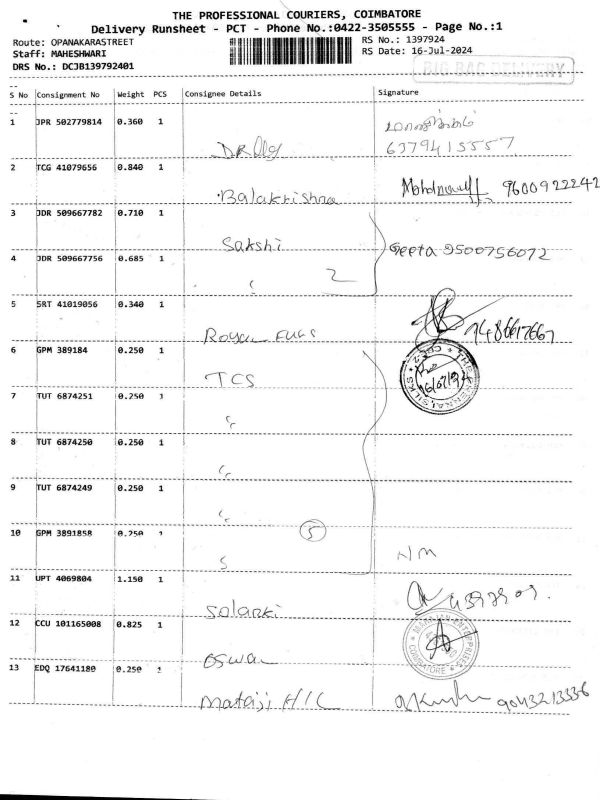 THE PROFESSIONAL COURIERS, COIMBATORE
Delivery Runsheet - PCT - Phone No.:0422-3505555 - Page No.:1
Route: OPANAKARASTREET RS No.: 1397924
Staff: MAHESHWARI RS Date: 16-Jul-2024
DRS No.: DCJB139792401
BIG BAG DELIVERY
S No Consignment No Weight PCS Consignee Details Signature
1 JPR 502779814 0.360 1
6379415557
2 TCG 41079656 0.840 1
Balakrishna 9600922242
3 JDR 509667782 0.710 1
Sakshi
4 JDR 509667756 0.685 1 Geeta 9500756072
" 2
5 SRT 41019056 0.340 1
6 GPM 389184 0.250 1
TCS
7 TUT 6874251 0.250 1
"
8 TUT 6874250 0.250 1
"
9 TUT 6874249 0.250 1
"
10 GPM 3891858 0.250 1
5
NM
11 UPT 4069804 1.150 1
Solanki
12 CCU 101165008 0.825 1
Oswal
13 EDQ 17641180 0.250 1
Mataji H/C 9043213336